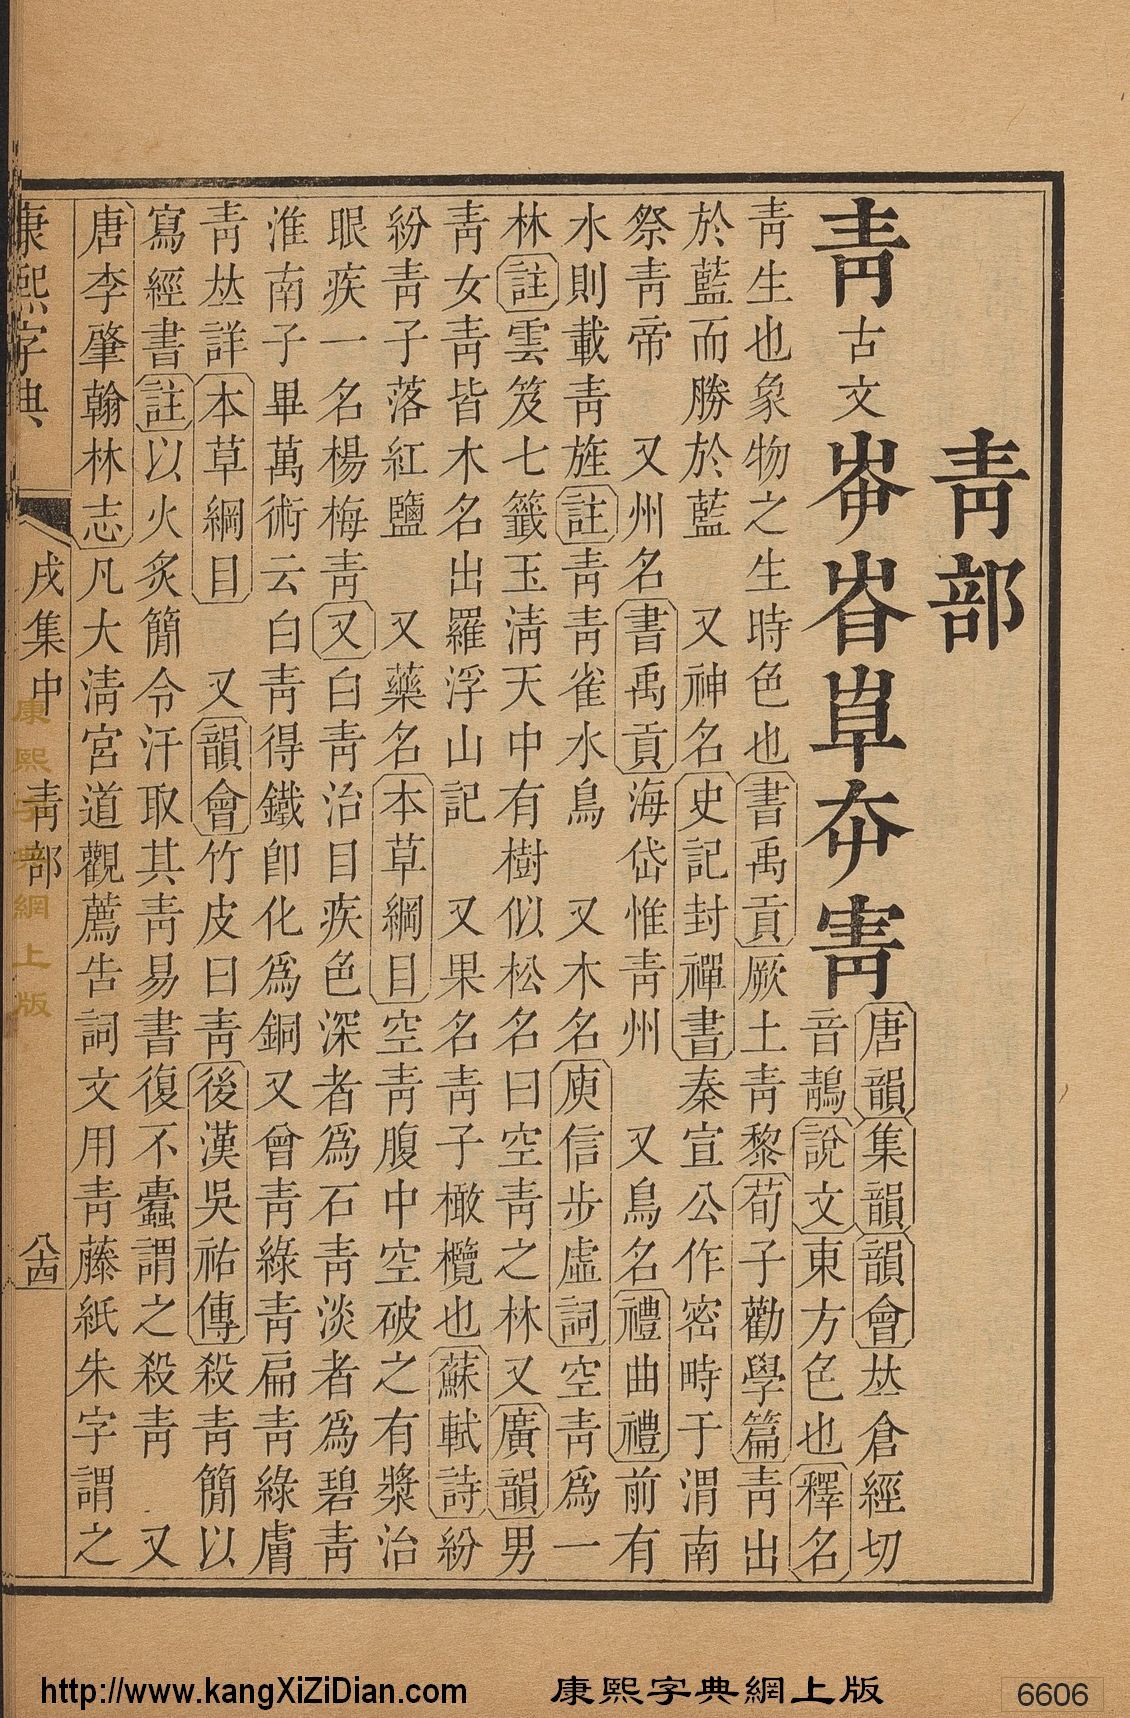 靑部
靑古文岺
唐韻集韻韻會𠀤倉經切
音鶄說文東方色也釋名
靑生也象物之生時色也書禹貢厥土靑黎荀子勸學篇靑出
於藍而勝於藍 又神名史記封禪書秦宣公作密畤于渭南
祭靑帝 又州名書禹貢海岱惟靑州 又鳥名禮曲禮前有
水則載靑旌註靑靑雀水鳥 又木名庾信步虛詞空靑爲一
林註雲笈七籤玉淸天中有樹似松名曰空靑之林又廣韻男
靑女靑皆木名出羅浮山記 又果名靑子橄欖也蘇軾詩紛
紛靑子落紅鹽 又藥名本草綱目空靑腹中空破之有漿治
眼疾一名楊梅靑又白靑治目疾色深者爲石靑淡者爲碧靑
淮南子畢萬術云白靑得鐵卽化爲銅又曾靑綠靑扁靑綠膚
靑𠀤詳本草綱目 又韻會竹皮曰靑後漢吳祐傳殺靑簡以
寫經書註以火炙簡令汗取其靑易書復不蠹謂之殺靑 又
唐李肇翰林志凡大淸宮道觀薦告詞文用靑藤紙朱字謂之
康熙字典 戌集中 靑部 八十四
康熙字典網上版
http://www.kangXiZiDian.com 康熙字典網上版 6606